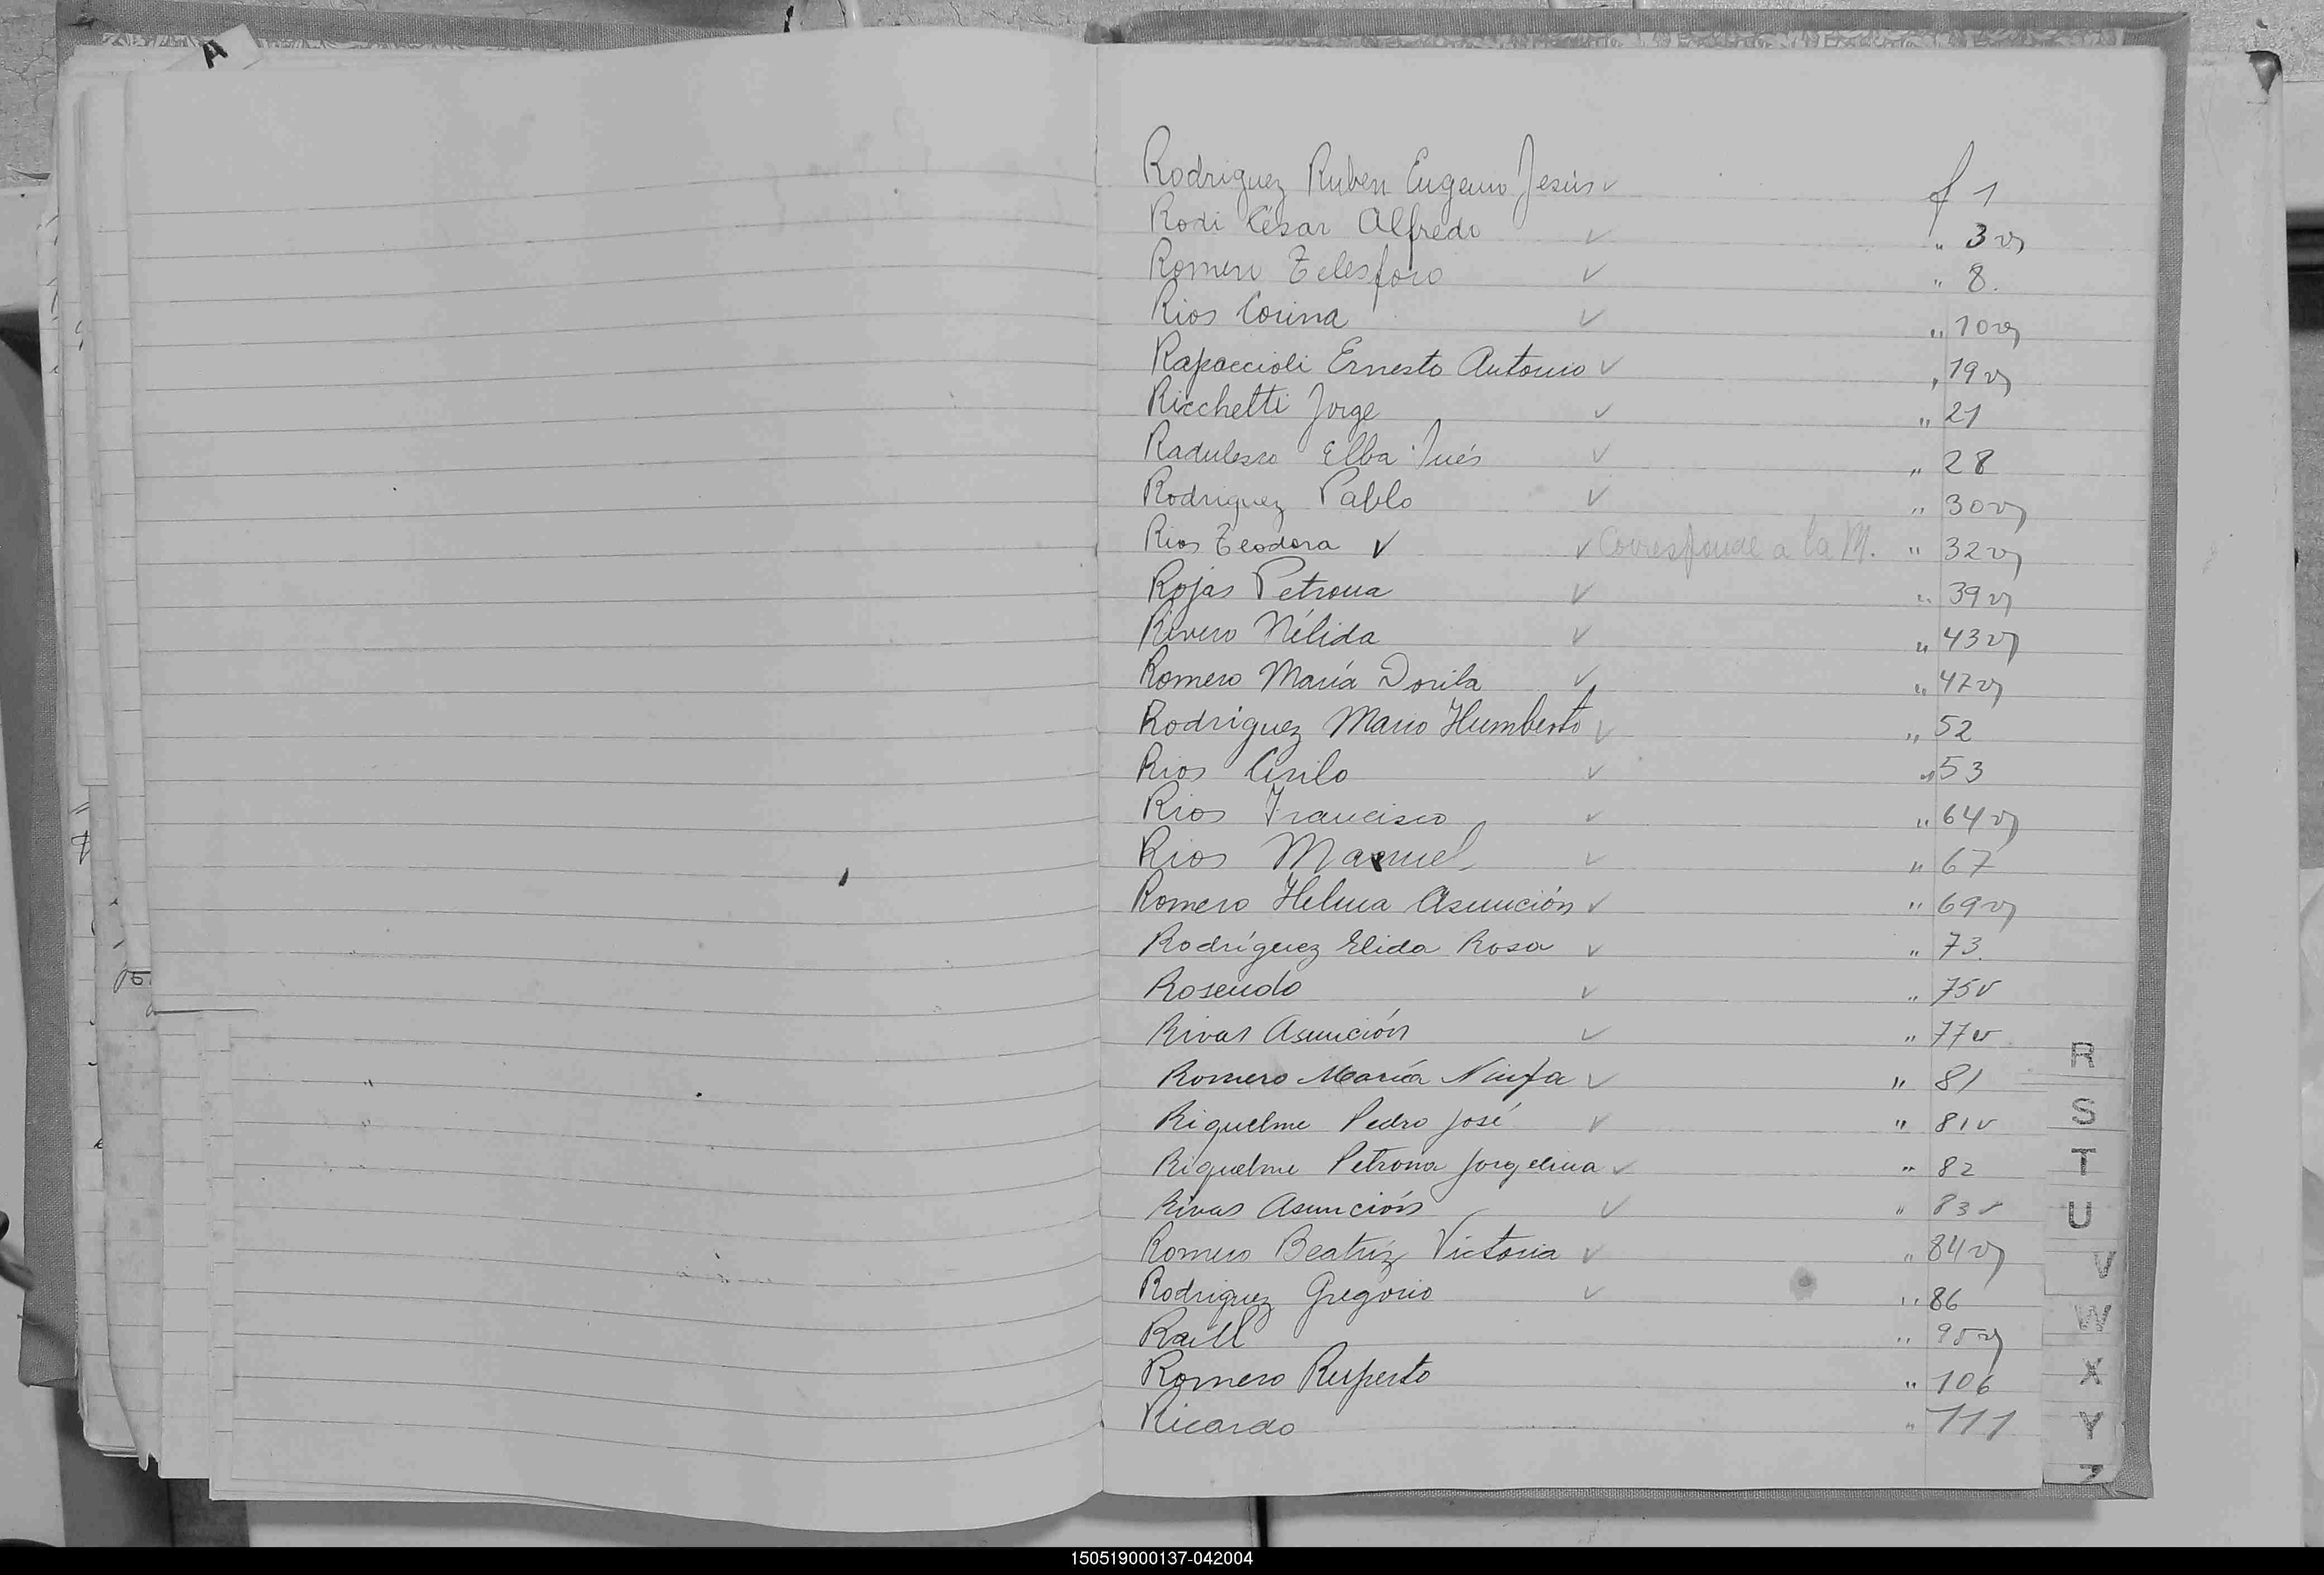 A
Rodriguez Ruben Eugenio Jesús ✓ f 1
Rodi César Alfredo ✓ " 3 v
Romero Telesforo ✓ " 8.
Rios Corina ✓ " 10 v
Rapaccioli Ernesto Antonio ✓ " 19 v
Ricchetti Jorge ✓ " 21
Radulesco Elba Inés ✓ " 28
Rodriguez Pablo ✓ " 30 v
Rios Teodora ✓ ✓ Corresponde a la M. " 32 v
Rojas Petrona ✓ " 39 v
Rivero Nélida ✓ " 43 v
Romero María Dorila ✓ " 47 v
Rodríguez Mario Humberto ✓ " 52
Rios Cirilo ✓ " 53
Rios Francisco ✓ " 64 v
Rios Manuel ✓ " 67
Romero Helma Asunción ✓ " 69 v
Rodríguez Elida Rosa ✓ " 73.
Rosendo ✓ " 75 v
Rivas Asunción ✓ " 77 v
Romero María Ninfa ✓ " 81
Riquelme Pedro José ✓ " 81 v
Riquelme Petrona Jorgelina ✓ " 82
Rivas Asunción ✓ " 83 v
Romero Beatríz Victoria ✓ " 84 v
Rodriguez Gregorio ✓ " 86
Raúl " 95 v
Romero Ruperto " 106
Ricardo " 111
R
S
T
U
V
W
X
Y
Z
150519000137-042004